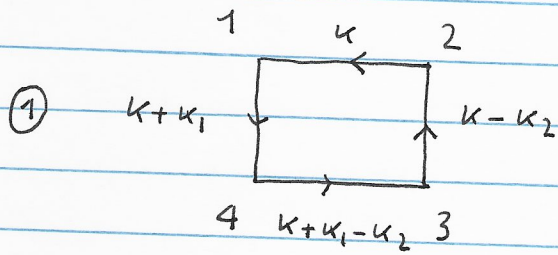 1 K 2
① K+K₁ K-K₂
4 K+K₁-K₂ 3